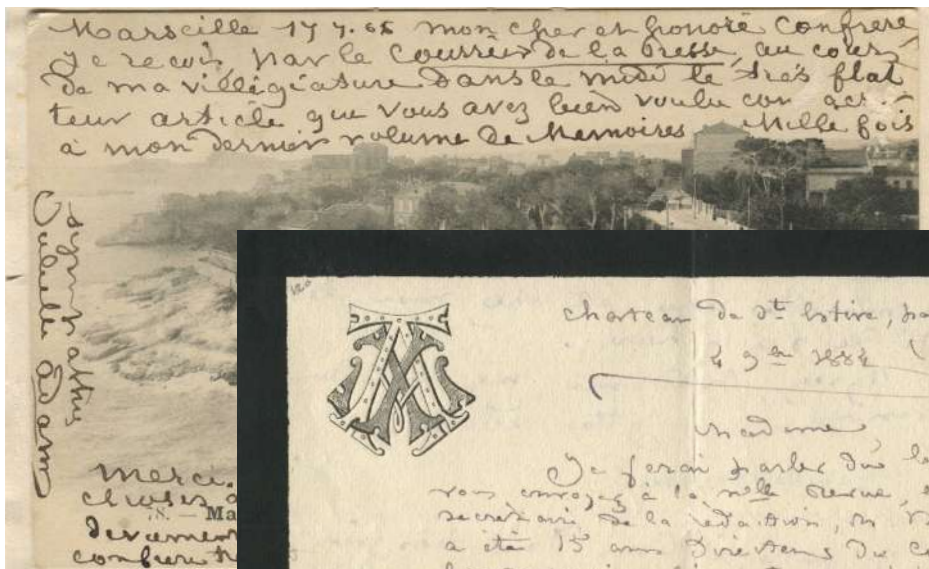 Marseille 17 7. 05 mon cher et honoré Confrere
je reçois par le Courrier de la Presse, au cours
de ma villégiature dans le midi le très flat
teur article que vous avez bien voulu
à mon dernier volume de Mémoires Mille fois
sympathie
Juliette Adam
merci.
choses
78. — Ma
devouement
confrere
120
chateau de St. Estève,
4 9bre 1884
Madame,
Je ferai parler du
vous envoyez à la Nlle Revue,
secretaire de la rédaction, M.
a été 15 ans Directeur du